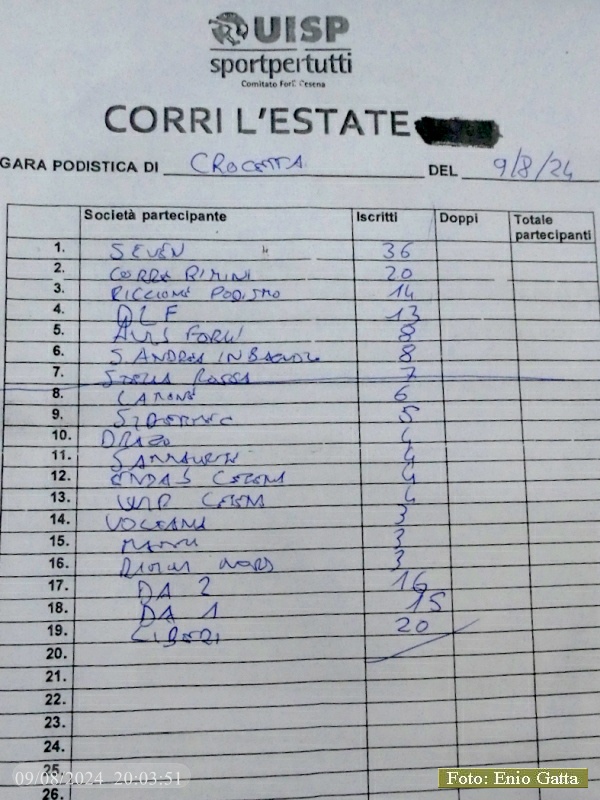 UISP
sportpertutti
Comitato Forlì Cesena
CORRI L'ESTATE
GARA PODISTICA DI CROCETTA DEL 9/8/24
Società partecipante Iscritti Doppi Totale partecipanti
1. SEVEN 36
2. CORRE RIMINI 20
3. RICCIONE PODISMO 14
4. DLF 13
5. AVIS FORLÌ 8
6. S ANDREA IN BAGNOLO 8
7. STELLA ROSSA 7
8. LAMONE 6
9. 5
10. DRAGO 4
11. 4
12. ENDAS CESENA 4
13. CESENA 4
14. 3
15. 3
16. RIMINI NORD 3
17. DA 2 16
18. DA 1 15
19. LIBERI 20
20.
21.
22.
23.
24.
25.
26.
09/08/2024 20:03:51
Foto: Enio Gatta